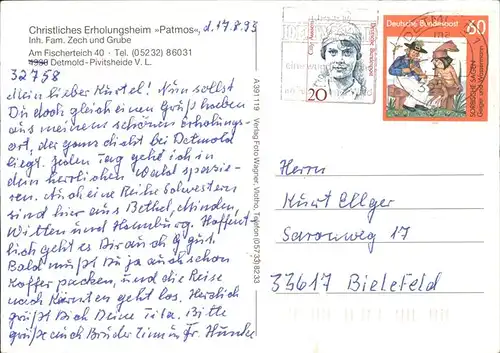 Christliches Erholungsheim »Patmos«, d. 17.8.93
Inh. Fam. Zech und Grube
Am Fischerteich 40 · Tel. (05232) 86031
4930 Detmold-Pivitsheide V. L.
32758
Mein lieber Kurtel! Nun sollst
Du doch gleich einen Gruß haben
aus meinem schönen Erholungs-
ort, der ganz dicht bei Detmold
liegt. Jeden Tag gehe ich in
dem herrlichen Wald spazie-
ren. Auch eine Reihe Schwestern
sind hier aus Bethel, Minden,
Witten und Hamburg. Hoffent-
lich geht es Dir auch gut.
Bald mußt Du ja auch schon
Koffer packen, und die Reise
nach Kärnten geht los. Herzlich
grüßt Dich Deine Bitte
grüße auch Bruder u. Fr.
A 391119 Verlag Foto Wagner, Vlotho, Telefon (05733) 8233
20
Cilly Aussem
Deutsche Bundespost
Deutsche Bundespost
60
SORBISCHE SAGEN
Geiger und Wassermann
Herrn
Kurt Ellger
Saronweg 17
33617 Bielefeld